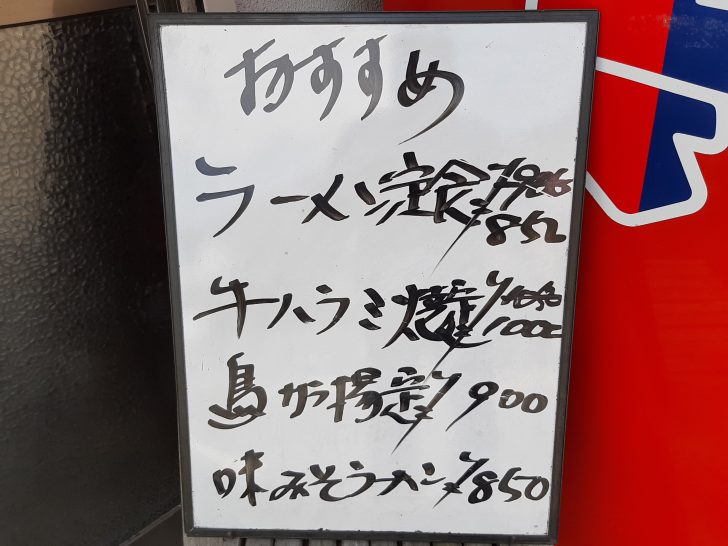 おすすめ
ラーメン定食
¥850
牛ハラミ焼定
¥1000
鳥から揚定¥900
味みそラーメン¥850